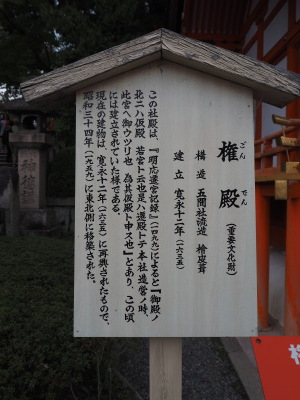 権殿
ごん
でん
(重要文化財)
構造 五間社流造 檜皮葺
建立 寛永十二年(一六三五)
この社殿は、『明応遷宮記録』(一四九九)によると『御殿ノ
北ニハ仮殿、若宮ト云也是ハ遷殿トテ本社造営ノ時、
此宮ヘ御ウツリ也、為其仮殿ト申ス也』とあり、この頃
には建立されていた様である。
現在の建物は、寛永十二年(一六三五)に再興されたもので、
昭和三十四年(一九五九)に東北側に移築された。